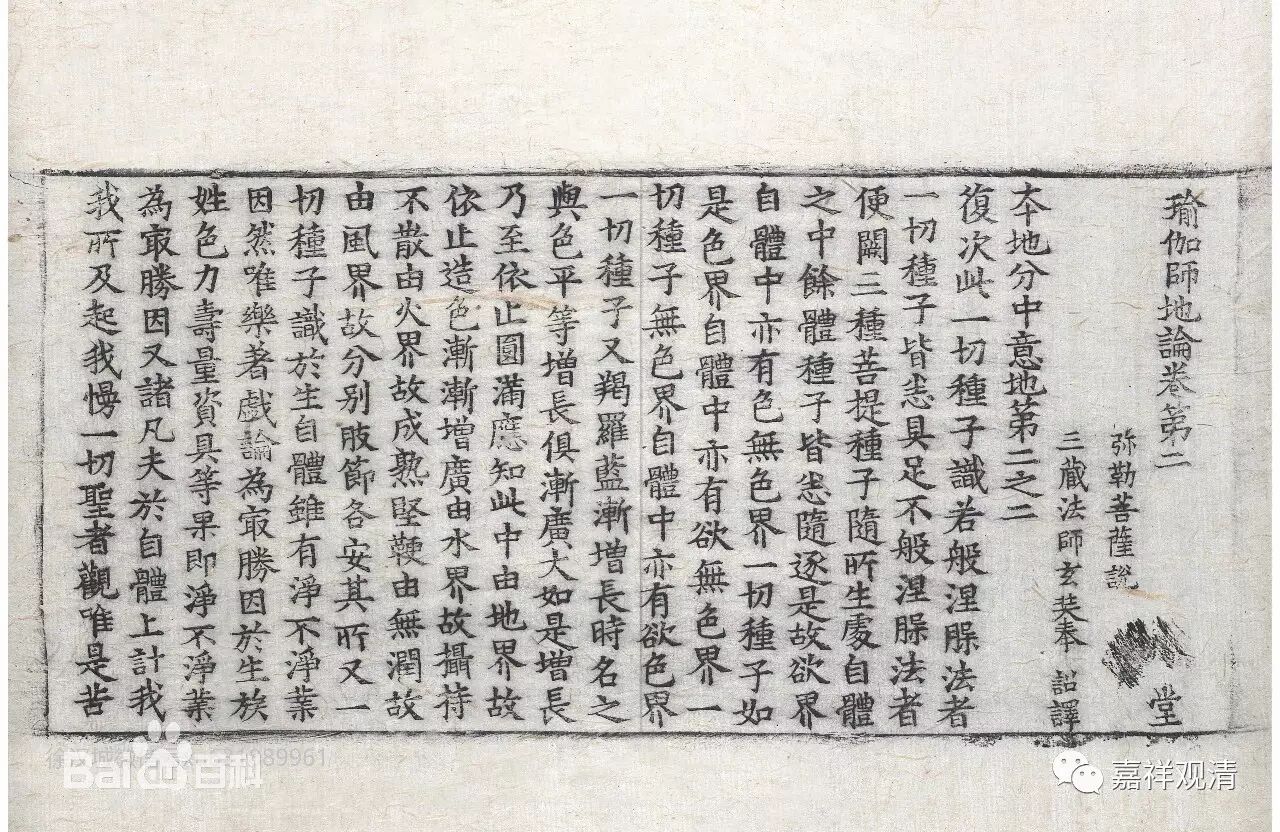 瑜伽師地論卷第二
堂
弥勒菩薩說
三藏法師玄奘奉 詔譯
本地分中意地第二之二
復次此一切種子識若般涅槃法者
一切種子皆悉具足不般涅槃法者
便闕三種菩提種子隨所生處自體
之中餘體種子皆悉隨逐是故欲界
自體中亦有色無色界一切種子如
是色界自體中亦有欲無色界一
切種子無色界自體中亦有欲色界
一切種子又羯羅藍漸增長時名之
與色平等增長俱漸廣大如是增長
乃至依止圓滿應知此中由地界故
依止造色漸漸增廣由水界故攝持
不散由火界故成熟堅鞕由無潤故
由風界故分別肢節各安其所又一
切種子識於生自體雖有淨不淨業
因然唯樂著戲論為㝡勝因於生族
姓色力壽量資具等果即淨不淨業
為㝡勝因又諸凡夫於自體上計我
我所及起我慢一切聖者觀唯是苦
Baidu百科
嘉祥观清